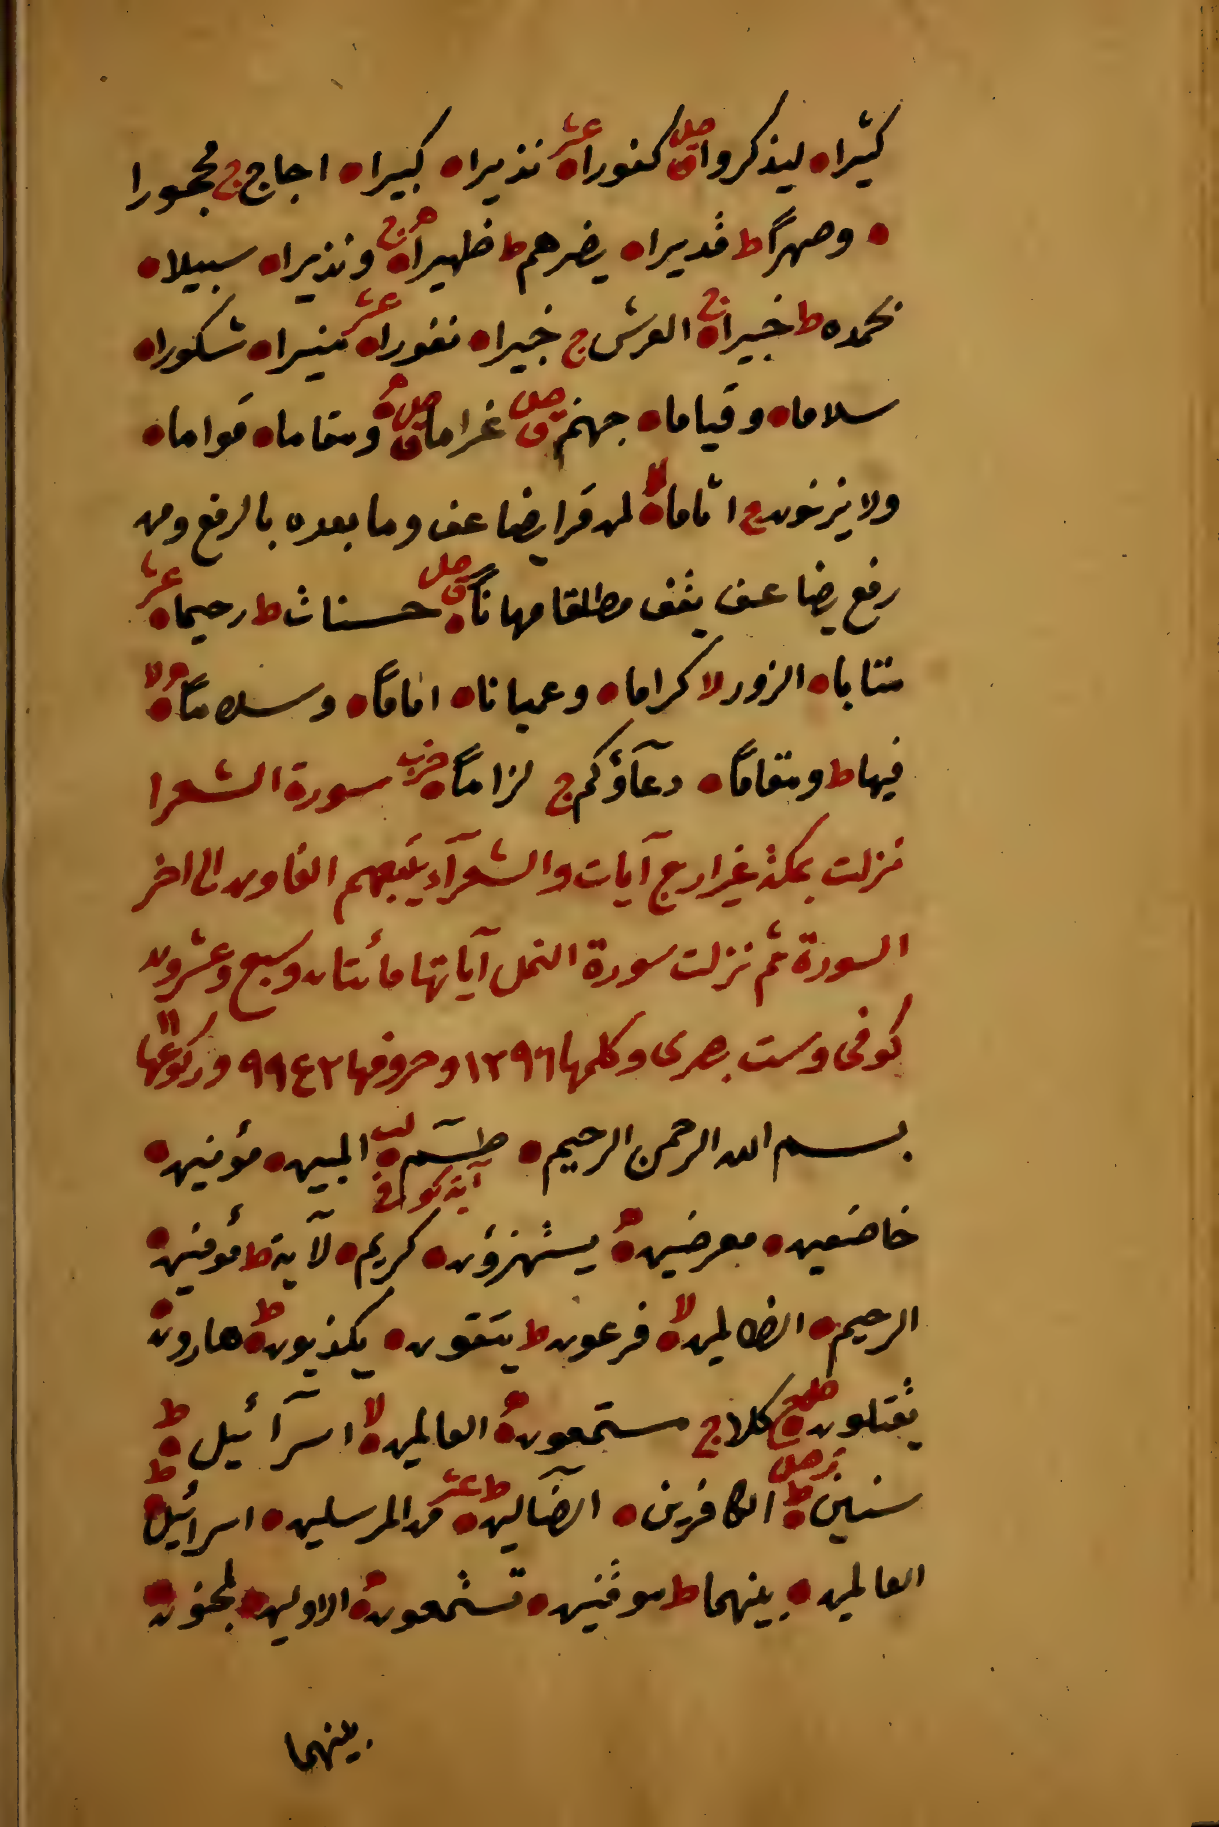 كثيرا ليذكروا صلى ق كفورا عشر نذيرا كبيرا اجاج ج محجورا
وصهرًا ط قديرا يضرهم ط ظهيرا ج ونذيرا سبيلا
بحمده ط خبيرا ج العرش ج خبيرا نفورا عشر منيرا شكورا
سلاما وقياما جهنم صلى ق غراما صلى ق ومقاما قواما
ولا يزنون ج اثاما لا لمن قرا يضاعف وما بعده بالرفع ومن
رفع يضاعف يقف مطلقا مهانًا صلى ق حسنات ط رحيما عشر
متابا الزور لا كراما وعميانا امامًا وسلامًا لا
فيها ط ومقامًا دعآؤكم ج لزامًا حزب سورة الشعرا
نزلت بمكة غير اربع آيات والشعرآء يتبعهم الغاون الى اخر
السورة ثم نزلت سورة النمل آياتها مائتان وسبع وعشرون
كوفى وست بصرى وكلمها ١٢٩٦ وحروفها ٩٩٤٢ وركوعها ١١
بسم الله الرحمن الرحيم طسٓمٓ لب المبين مؤمنين
آية كوفى
خاضعين معرضين يستهزؤن كريم لآية ط مؤمنين
الرحيم الظالمين لا فرعون ط يتقون يكذبون ط هارون
يقتلون كلا ج مستمعون العالمين لا اسرآئيل ط
سنين ط الكافرين الضآلين ط عشر من المرسلين اسرائيل ط
العالمين بينهما ط موقنين تستمعون الاولين لمجنون
بينهما